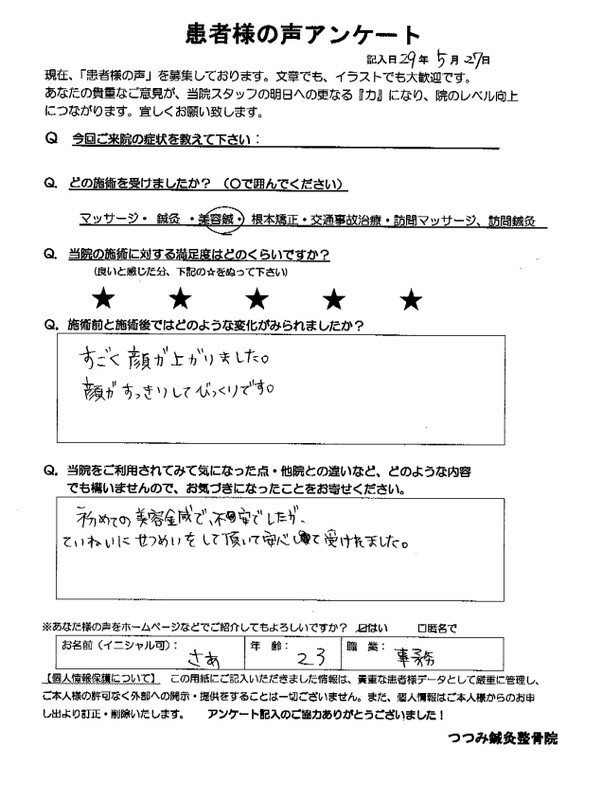 患者様の声アンケート
記入日29年5月27日
現在、「患者様の声」を募集しております。文章でも、イラストでも大歓迎です。
あなたの貴重なご意見が、当院スタッフの明日への更なる『力』になり、院のレベル向上
につながります。宜しくお願い致します。
Q 今回ご来院の症状を教えて下さい:
Q. どの施術を受けましたか? (〇で囲んでください)
マッサージ・ 鍼灸 ・美容鍼・ 根本矯正・交通事故治療・訪問マッサージ、訪問鍼灸
Q. 当院の施術に対する満足度はどのくらいですか?
(良いと感じた分、下記の☆をぬって下さい)
★ ★ ★ ★ ★
Q. 施術前と施術後ではどのような変化がみられましたか?
すごく顔が上がりました。
顔がすっきりしてびっくりです。
Q. 当院をご利用されてみて気になった点・他院との違いなど、どのような内容
でも構いませんので、お気づきになったことをお寄せください。
初めての美容金咸で、不安でしたが、
ていねいにせつめいをして頂いて安心して受けれました。
※あなた様の声をホームページなどでご紹介してもよろしいですか? ☑はい □匿名で
お名前(イニシャル可): さあ 年 齢: 23 職 業: 事務
【個人情報保護について】 この用紙にご記入いただきました情報は、貴重な患者様データとして厳重に管理し、
ご本人様の許可なく外部への開示・提供をすることは一切ございません。また、個人情報はご本人様からのお申
し出より訂正・削除いたします。 アンケート記入のご協力ありがとうございました!
つつみ鍼灸整骨院